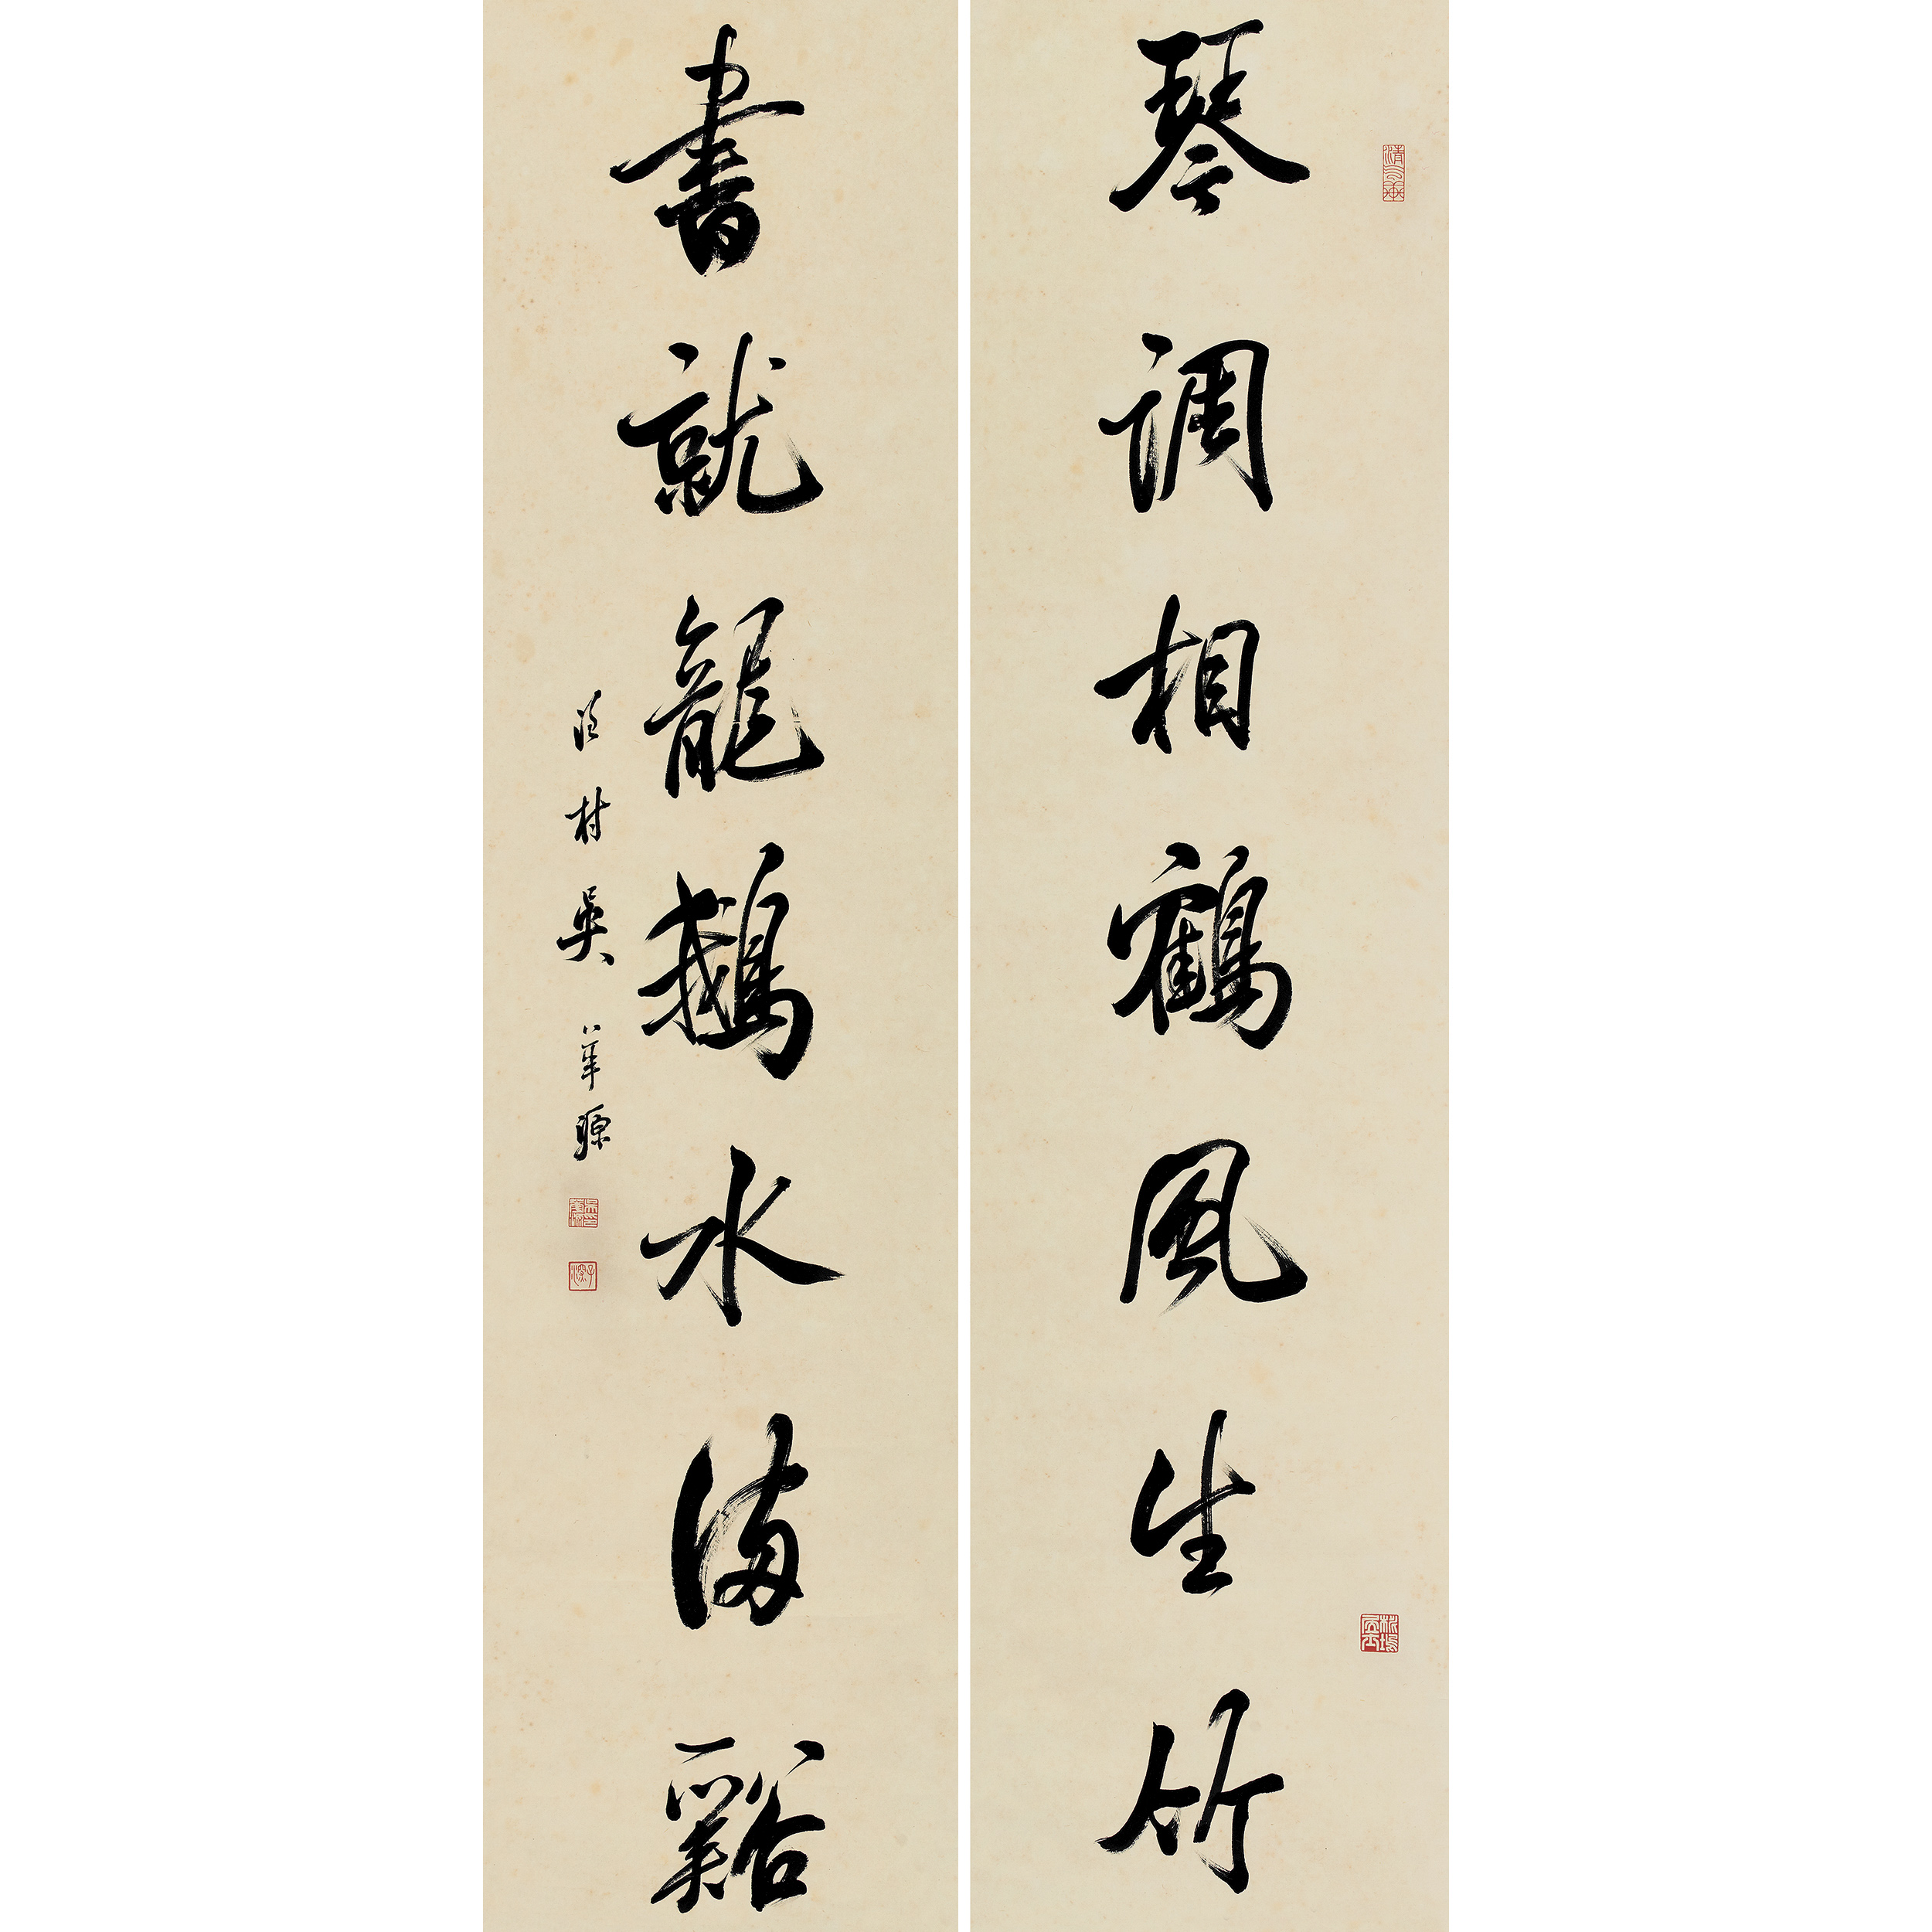 琴調相鶴風生竹
書就籠鵝水滿谿
漁村吳華源